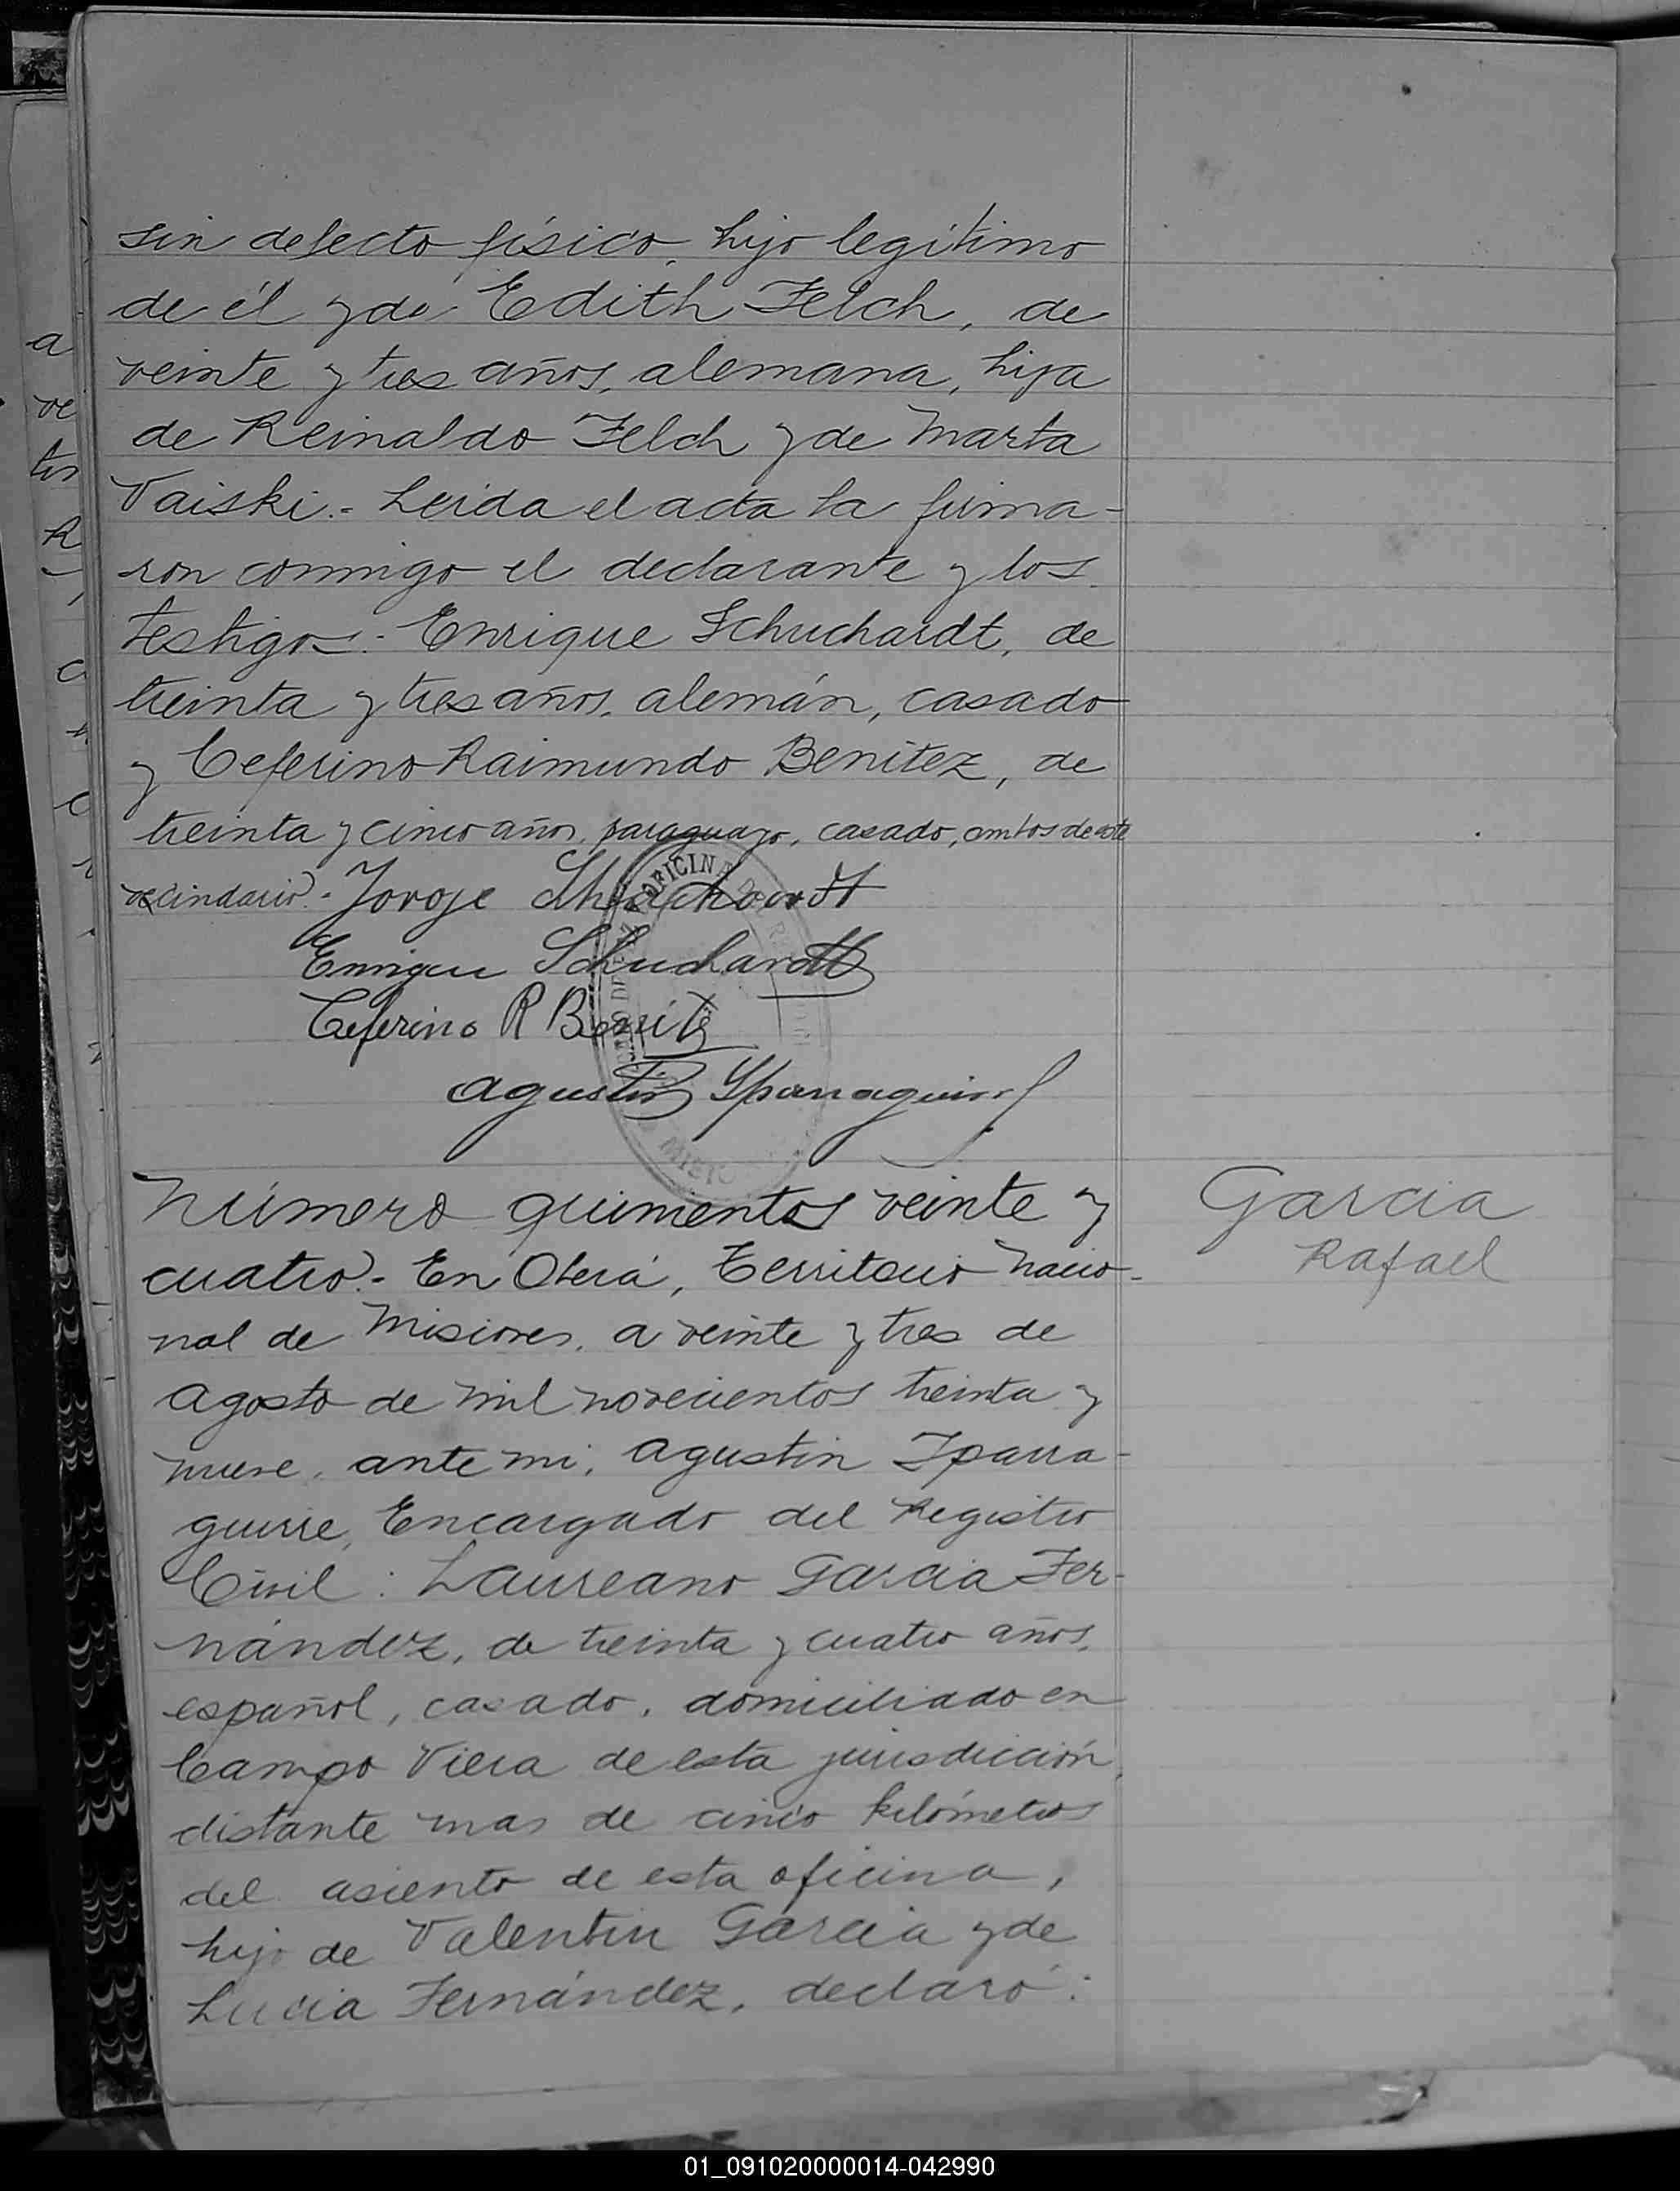 sin defecto físico, hijo legítimo
de él y de Edith Felch, de
veinte y tres años, alemana, hija
de Reinaldo Felch y de Marta
Vaiski.- Leída el acta la firma-
ron conmigo el declarante y los
testigos: Enrique Schuchardt, de
treinta y tres años, alemán, casado
y Ceferino Raimundo Benitez, de
treinta y cinco años, paraguayo, casado, ambos de este
vecindario.- Jorge Schuchardt
Enrique Schuchardt
Ceferino R Benitez
Agustin Yparraguirre
OFICINA
MISIO
Número quinientos veinte y
cuatro.- En Oberá, Territorio Nacio-
nal de Misiones, a veinte y tres de
Agosto de mil novecientos treinta y
nueve, ante mi, Agustin Iparra-
guirre, Encargado del Registro
Civil: Laureano Garcia Fer-
nández, de treinta y cuatro años,
español, casado, domiciliado en
Campo Viera de esta jurisdicción,
distante mas de cinco kilómetros
del asiento de esta oficina,
hijo de Valentin Garcia y de
Lucia Fernández, declaró:
Garcia
Rafael
a
ve
tes
R
01_091020000014-042990